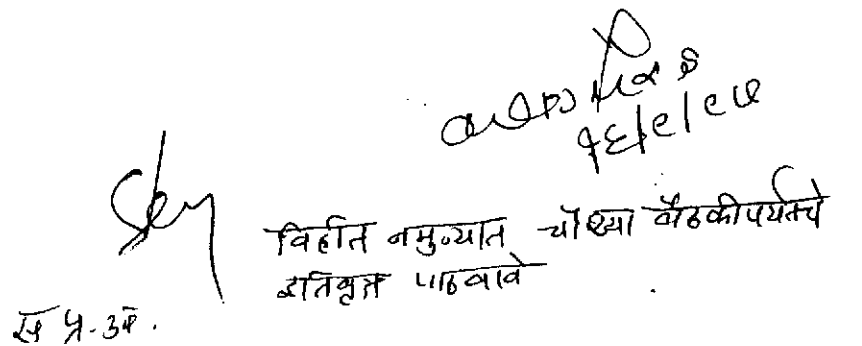 १६/९/९७
विहीत नमुन्यात चौथ्या बैठकीपर्यंतचे
इतिवृत्त पाठवावे
स प्र-अ.